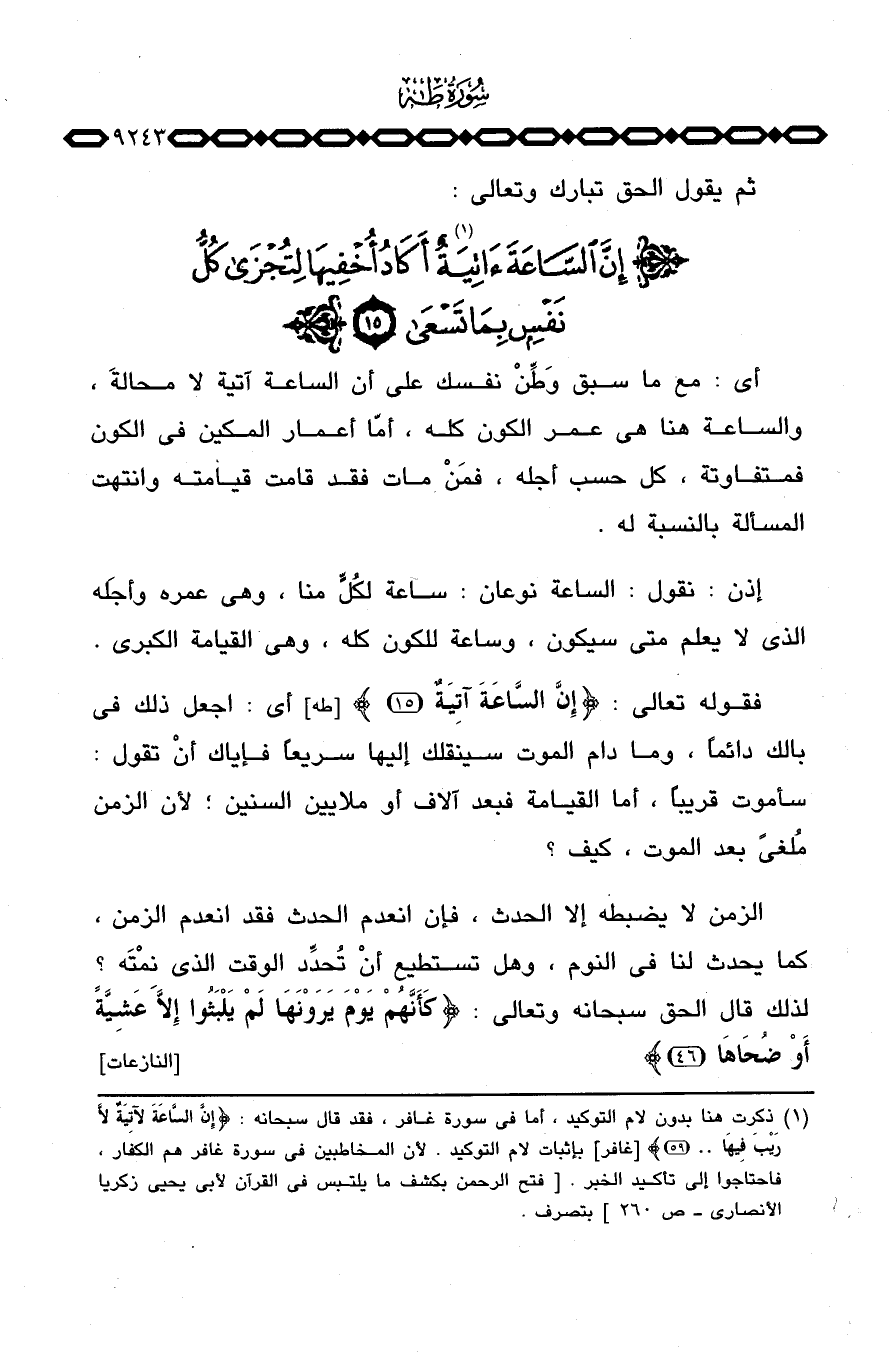 سُورَةُ طه
٩٢٤٣
ثم يقول الحق تبارك وتعالى :
﴿ إِنَّ ٱلسَّاعَةَ ءَاتِيَةٌ (١) أَكَادُ أُخْفِيهَا لِتُجْزَىٰ كُلُّ
نَفْسٍ بِمَا تَسْعَىٰ ١٥ ﴾
أى : مع ما سبق وَطِّنْ نفسك على أن الساعة آتية لا محالةَ ،
والساعة هنا هى عمر الكون كله ، أمّا أعمار المكين فى الكون
فمتفاوتة ، كل حسب أجله ، فمَنْ مات فقد قامت قيامته وانتهت
المسألة بالنسبة له .
إذن : نقول : الساعة نوعان : ساعة لكُلٍّ منا ، وهى عمره وأجلَه
الذى لا يعلم متى سيكون ، وساعة للكون كله ، وهى القيامة الكبرى .
فقوله تعالى : ﴿ إِنَّ السَّاعَةَ آتِيَةٌ (١٥) ﴾ [طه] أى : اجعل ذلك فى
بالك دائماً ، وما دام الموت سينقلك إليها سريعاً فإياك أنْ تقول :
سأموت قريباً ، أما القيامة فبعد آلاف أو ملايين السنين ؛ لأن الزمن
مُلغىً بعد الموت ، كيف ؟
الزمن لا يضبطه إلا الحدث ، فإن انعدم الحدث فقد انعدم الزمن ،
كما يحدث لنا فى النوم ، وهل تستطيع أنْ تُحدِّد الوقت الذى نِمْتَه ؟
لذلك قال الحق سبحانه وتعالى : ﴿ كَأَنَّهُمْ يَوْمَ يَرَوْنَهَا لَمْ يَلْبَثُوا إِلاَّ عَشِيَّةً
أَوْ ضُحَاهَا (٤٦) ﴾ [النازعات]
(١) ذكرت هنا بدون لام التوكيد ، أما فى سورة غافر ، فقد قال سبحانه : ﴿ إِنَّ السَّاعَةَ لآتِيَةٌ لاَّ
رَيْبَ فِيهَا .. (٥٩) ﴾ [غافر] بإثبات لام التوكيد . لأن المخاطبين فى سورة غافر هم الكفار ،
فاحتاجوا إلى تأكيد الخبر . [ فتح الرحمن بكشف ما يلتبس فى القرآن لأبى يحيى زكريا
الأنصارى - ص ٢٦٠ ] بتصرف .